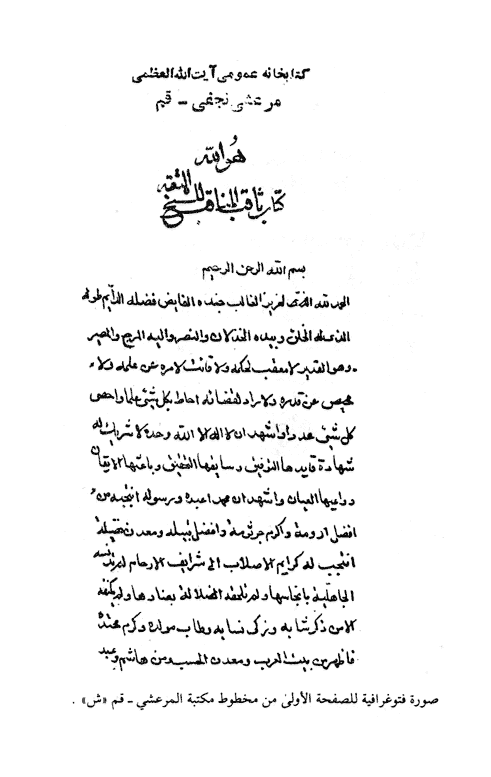 كتابخانه عمومی آیت الله العظمی
مرعشی نجفی - قم
هو الله
كتاب ثاقب المناقب للشيخ الثقة
بسم الله الرحمن الرحيم
الحمد لله العزيز الغالب جنده الفايض فضله الدايم طوله
الذي له الخلق وبيده الخذلان والنصر واليه المرجع والمصير
وهو القدير لا معقب لحكمه ولا فائت لامره عن علمه ولا
محيص عن قدره ولا راد لقضائه احاط بكل شيئ علما واحصى
كل شيئ عددا واشهد ان لا اله الا الله وحده لا شريك له
شهادة قايدها التوفيق وسايقها التحقيق وباعثها الايقان
وداعيها العيان واشهد ان محمدا عبده ورسوله انتجبه من
افضل ارومة واكرم جرثومة وافضل قبيلة ومعدن فضيلة
انتجب له كرايم الاصلاب الى شرايف الارحام لم تدنسه
الجاهلية بانجاسها ولم تلحقه الضلالة بعنادها ولم يكنفه
الا من ذكر شابه وزكى نسابه وطاب مولده وكرم محتده
فاظهره من بيت العرب ومعدن الحسب ومن هاشم وعبد
صورة فتوغرافية للصفحة الأولى من مخطوط مكتبة المرعشي - قم «ش» .